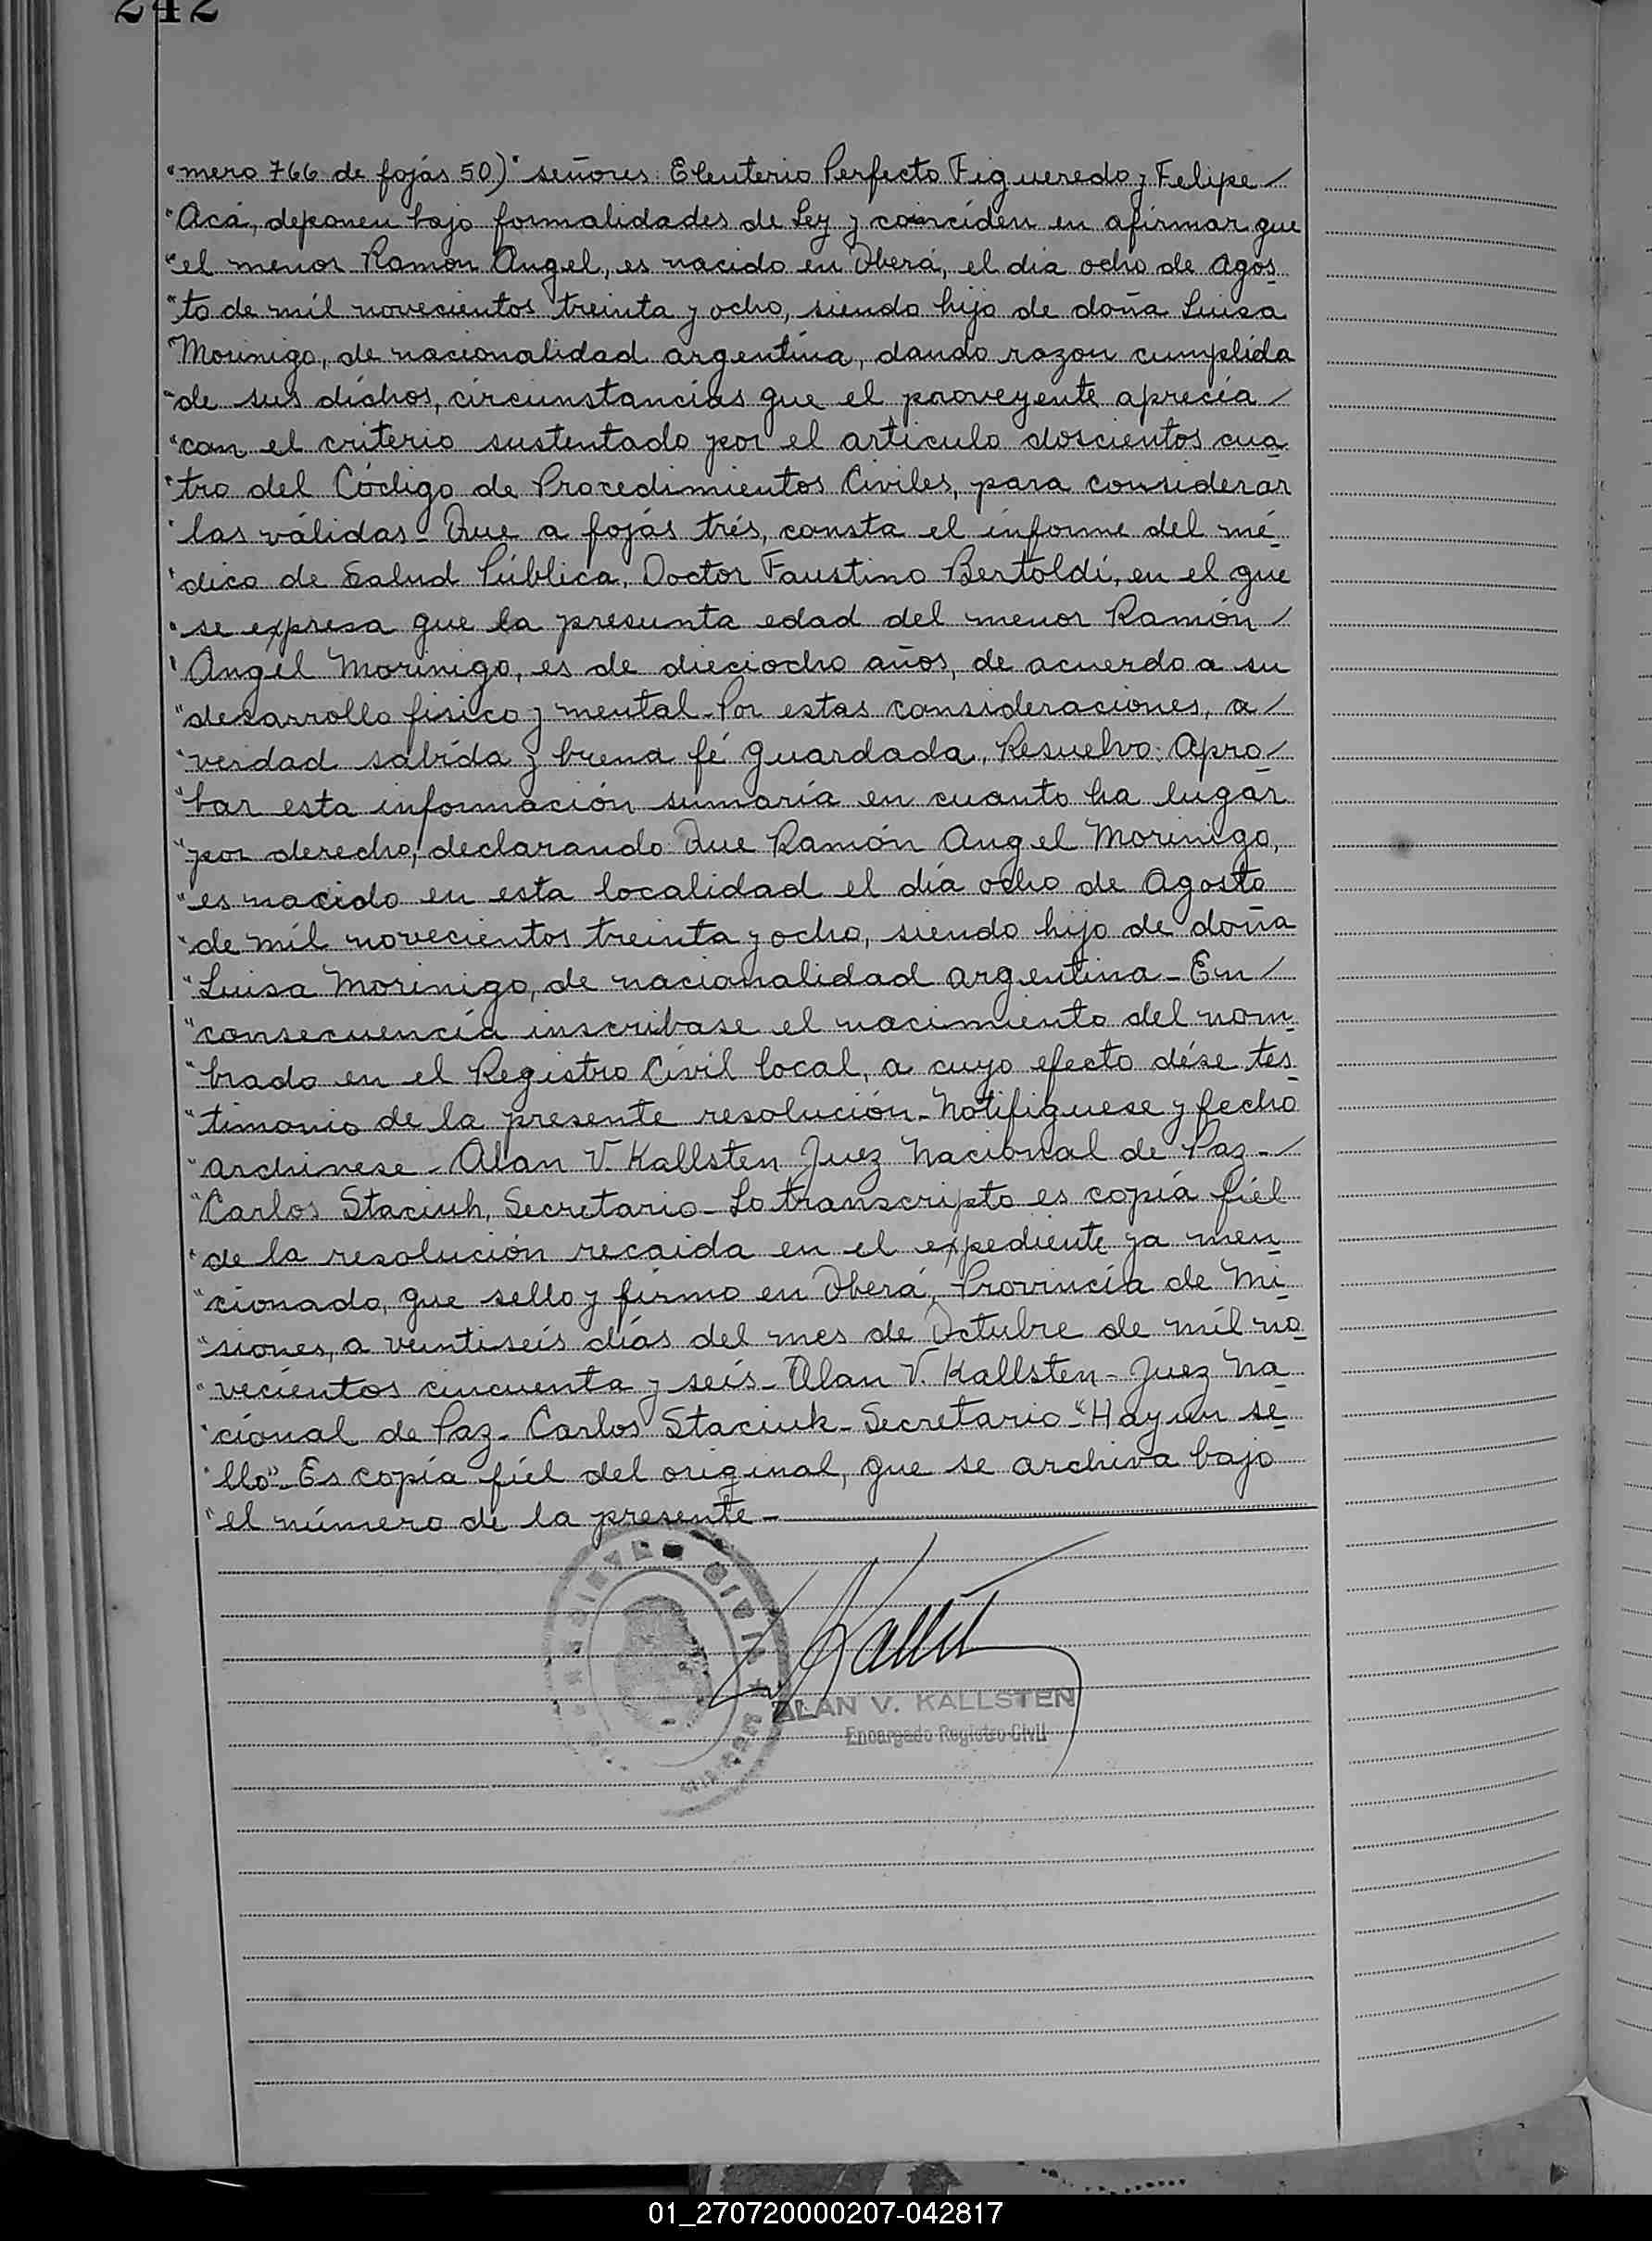 242
"mero 766 de fojás 50)" señores: Eleuterio Perfecto Figueredo y Felipe /
"Acá, deponen bajo formalidades de Ley y coinciden en afirmar que
"el menor Ramón Angel, es nacido en Oberá, el día ocho de Agos-
"to de mil novecientos treinta y ocho, siendo hijo de doña Luisa
"Morinigo, de nacionalidad argentina, dando razon cumplida
"de sus dichos, circunstancias que el proveyente aprecia /
"con el criterio sustentado por el artículo doscientos cua-
"tro del Código de Procedimientos Civiles, para considerar
"las válidas- Que a fojás trés, consta el informe del mé-
"dico de Salud Pública, Doctor Faustino Bertoldi, en el que
"se expresa que la presunta edad del menor Ramón /
"Angel Morinigo, es de dieciocho años, de acuerdo a su
"desarrollo fisico y mental- Por estas consideraciones, a /
"verdad sabida y buena fé guardada, Resuelvo: Apro- /
"bar esta información sumaria en cuanto ha lugar
"por derecho, declarando: Que Ramón Angel Morinigo,
"es nacido en esta localidad el día ocho de Agosto
"de mil novecientos treinta y ocho, siendo hijo de doña
"Luisa Morinigo, de nacionalidad argentina- En /
"consecuencia inscribase el nacimiento del nom-
"brado en el Registro Civil local, a cuyo efecto dése tes-
"timonio de la presente resolución- Notifiquese y fecho
"archivese- Alan V. Kallsten Juez Nacional de Paz- /
"Carlos Staciuk, Secretario- Lo transcripto es copia fiel
"de la resolución recaida en el expediente ya men-
"cionado, que sello y firmo en Oberá, Provincia de Mi-
"siones, a veintiseis días del mes de Octubre de mil no-
"vecientos cincuenta y seis- Alan V. Kallsten- Juez Na-
"cional de Paz- Carlos Staciuk- Secretario- "Hay un se-
"llo"- Es copia fiel del original, que se archiva bajo
"el número de la presente-
ALAN V. KALLSTEN
Encargado Registro Civil
01_270720000207-042817